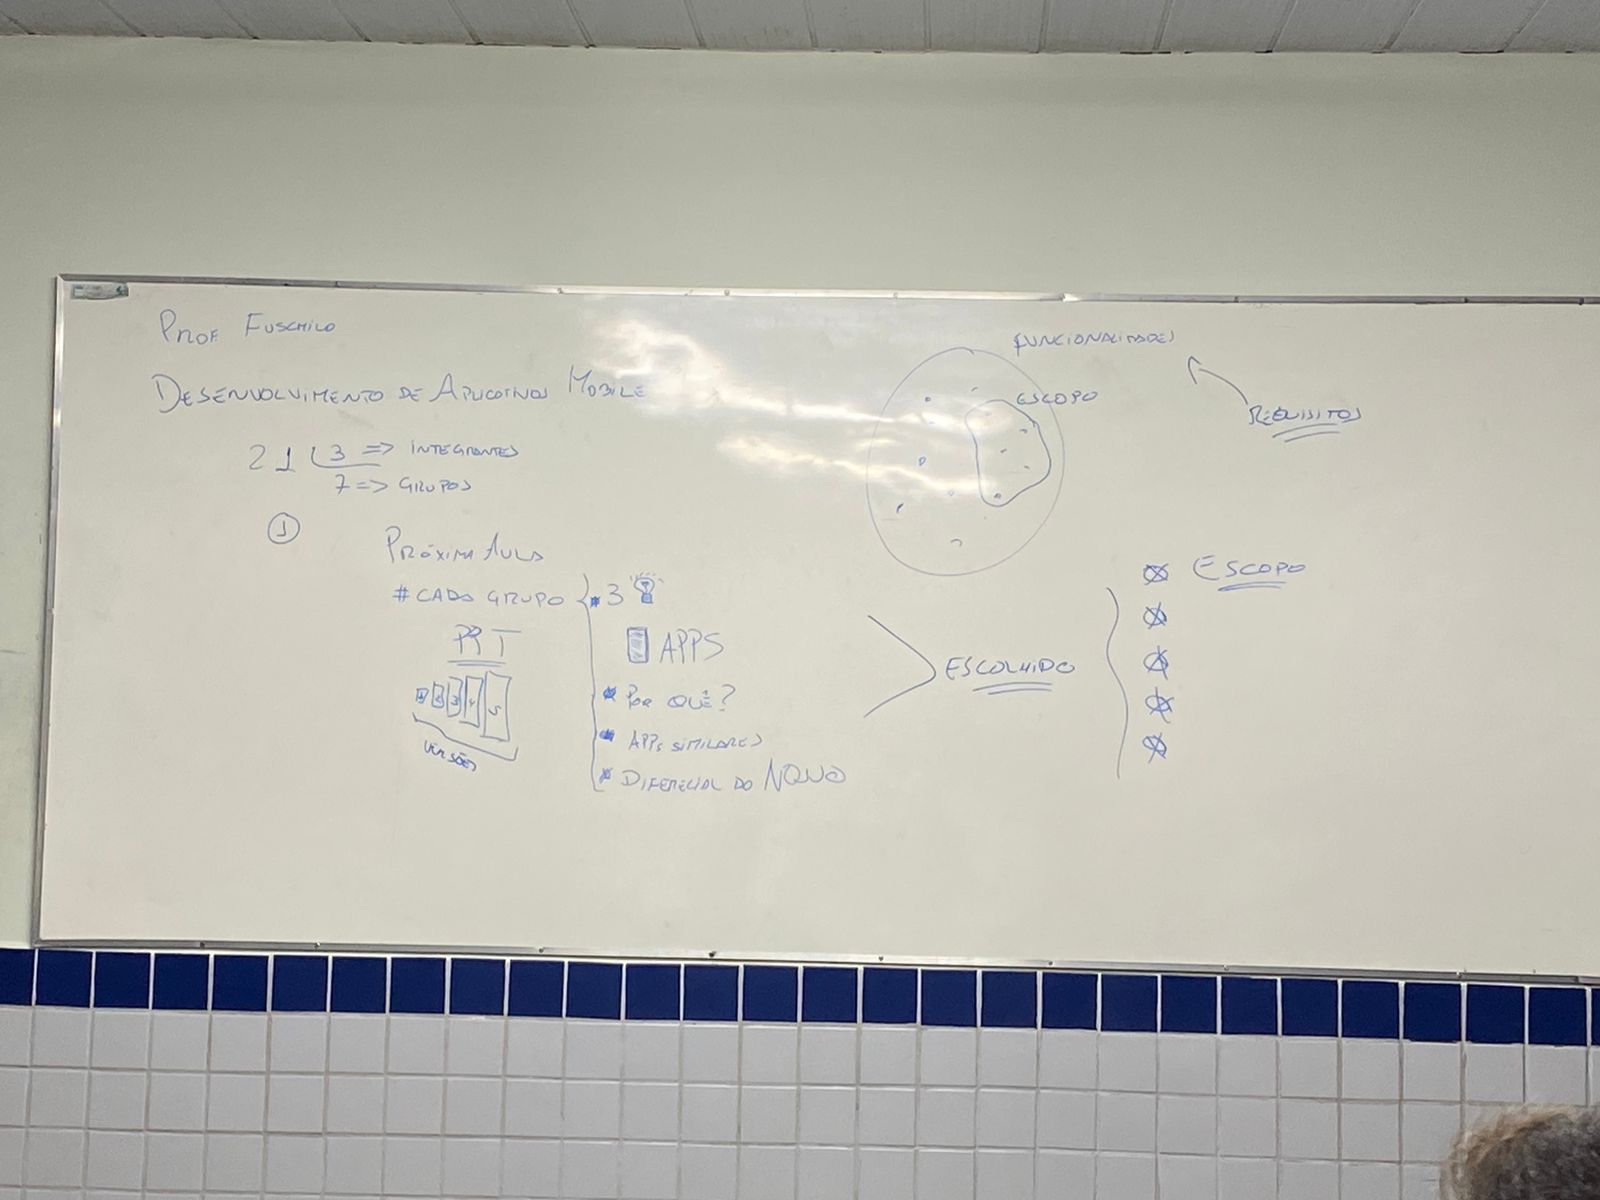 PROF FUSCHILO
DESENVOLVIMENTO DE APLICATIVOS MOBILE
21 3 => INTEGRANTES
7 => GRUPOS
1
PRÓXIMA AULA
# CADA GRUPO
3
APPS
POR QUÊ?
APPS SIMILARES
DIFERECIAL DO NOVO
1 2 3 4 5
VERSÕES
ESCOLHIDO
FUNCIONALIDADES
ESCOPO
REQUISITOS
ESCOPO